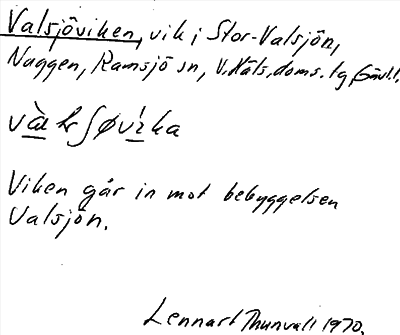 Valsjöviken, vik i Stor-Valsjön,
Naggen, Ramsjö sn, V. Häls. doms. tg Gävl.l.
Viken går in mot bebyggelsen
Valsjön.
Lennart Thunvall 1970.